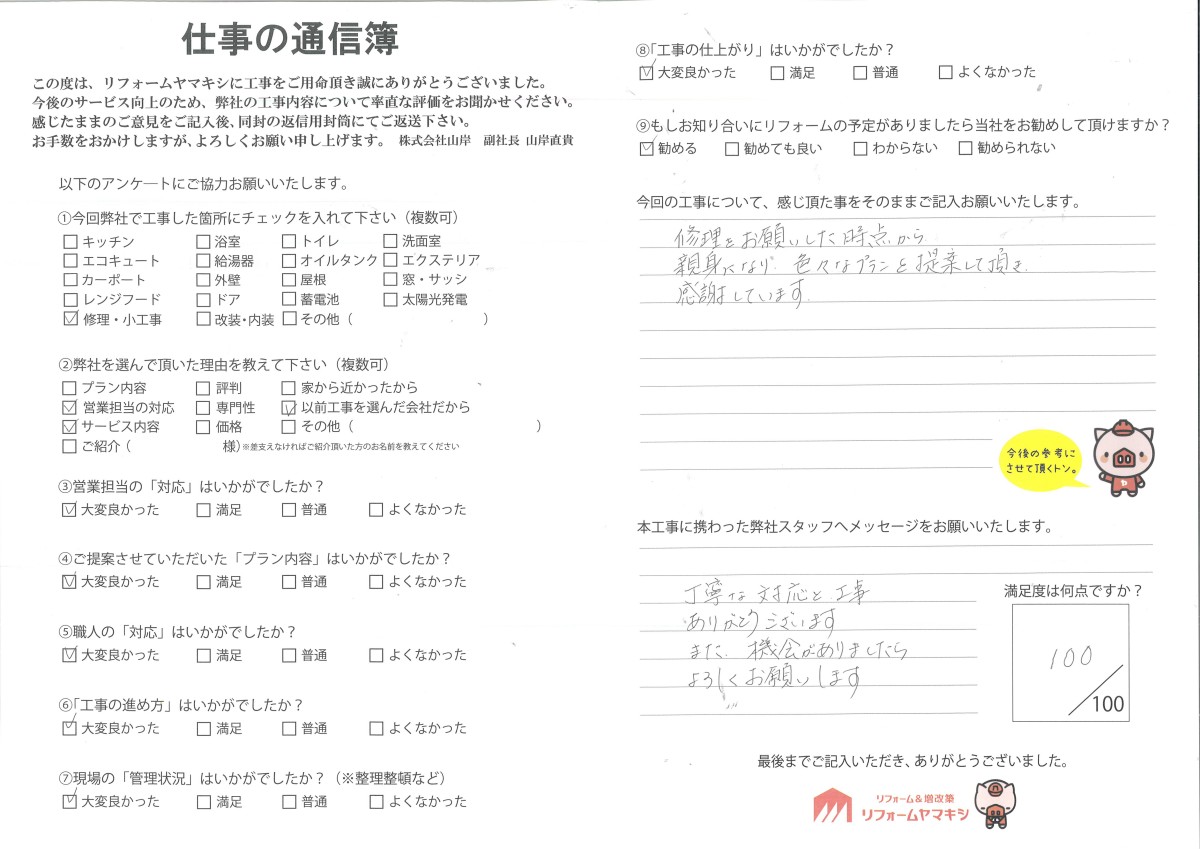 仕事の通信簿
この度は、リフォームヤマキシに工事をご用命頂き誠にありがとうございました。
今後のサービス向上のため、弊社の工事内容について率直な評価をお聞かせください。
感じたままのご意見をご記入後、同封の返信用封筒にてご返送下さい。
お手数をおかけしますが、よろしくお願い申し上げます。 株式会社山岸 副社長 山岸直貴
以下のアンケートにご協力お願いいたします。
①今回弊社で工事した箇所にチェックを入れて下さい（複数可）
□キッチン □浴室 □トイレ □洗面室
□エコキュート □給湯器 □オイルタンク □エクステリア
□カーポート □外壁 □屋根 □窓・サッシ
□レンジフード □ドア □蓄電池 □太陽光発電
☑修理・小工事 □改装・内装 □その他（ ）
②弊社を選んで頂いた理由を教えて下さい（複数可）
□プラン内容 □評判 □家から近かったから
☑営業担当の対応 □専門性 ☑以前工事を選んだ会社だから
☑サービス内容 □価格 □その他（ ）
□ご紹介（ 様）※差支えなければご紹介頂いた方のお名前を教えてください
③営業担当の「対応」はいかがでしたか？
☑大変良かった □満足 □普通 □よくなかった
④ご提案させていただいた「プラン内容」はいかがでしたか？
☑大変良かった □満足 □普通 □よくなかった
⑤職人の「対応」はいかがでしたか？
☑大変良かった □満足 □普通 □よくなかった
⑥「工事の進め方」はいかがでしたか？
☑大変良かった □満足 □普通 □よくなかった
⑦現場の「管理状況」はいかがでしたか？（※整理整頓など）
☑大変良かった □満足 □普通 □よくなかった
⑧「工事の仕上がり」はいかがでしたか？
☑大変良かった □満足 □普通 □よくなかった
⑨もしお知り合いにリフォームの予定がありましたら当社をお勧めして頂けますか？
☑勧める □勧めても良い □わからない □勧められない
今回の工事について、感じ頂た事をそのままご記入お願いいたします。
修理をお願いした時点から
親身になり、色々なプランを提案して頂き
感謝しています
今後の参考に
させて頂くトン。
本工事に携わった弊社スタッフへメッセージをお願いいたします。
丁寧な対応と工事
ありがとうございます
また、機会がありましたら
よろしくお願いします
満足度は何点ですか？
100
/100
最後までご記入いただき、ありがとうございました。
リフォーム＆増改築
リフォームヤマキシ